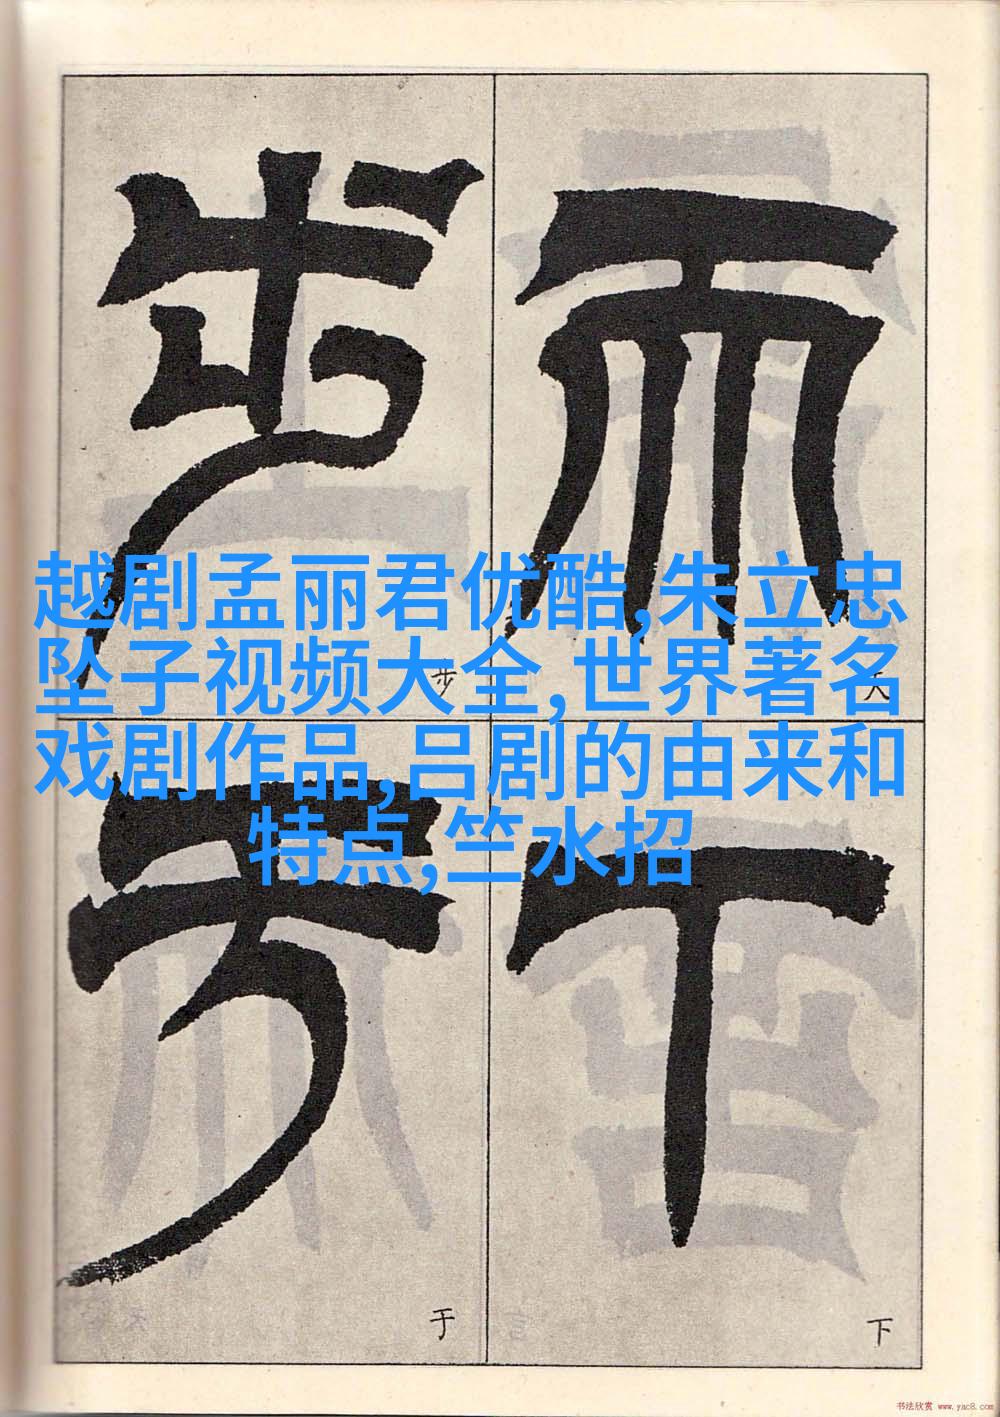 越剧孟丽君优酷,朱立忠
坠子视频大全,世界著名
戏剧作品,吕剧的由来和
特点,竺水招
天
下
下
步
步
于
于
书法欣赏 www.yac8.com